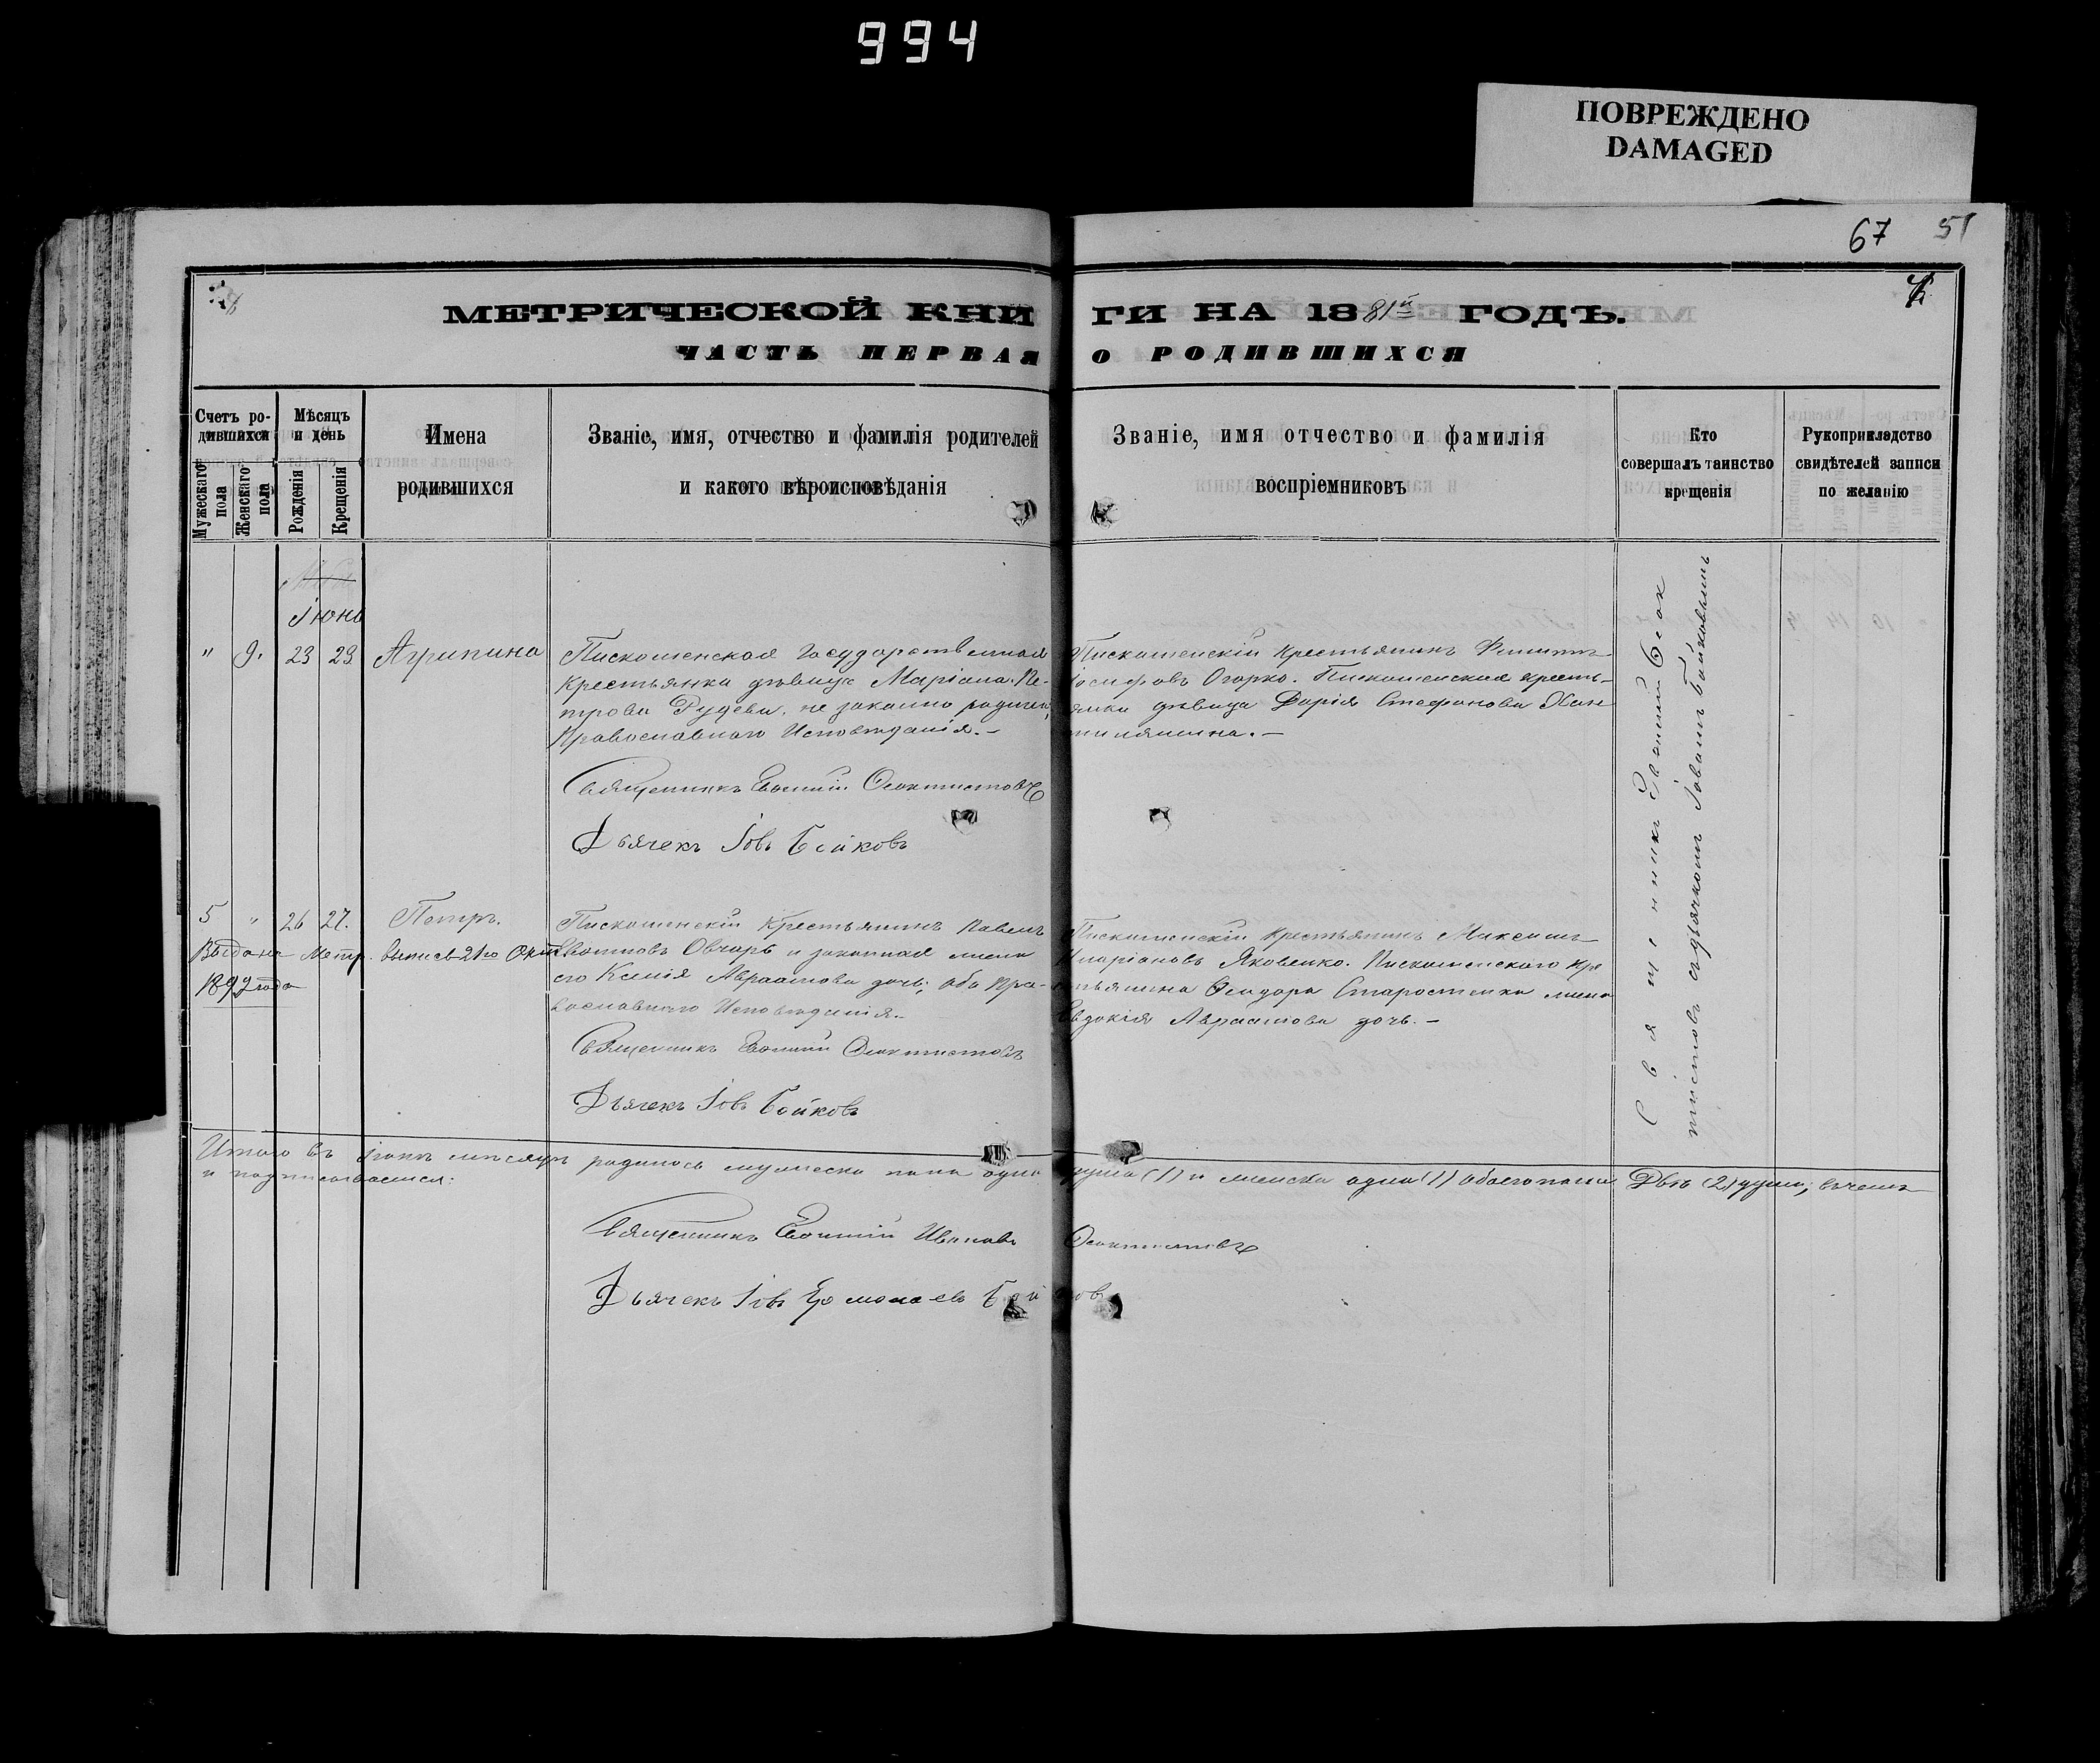 994
ПОВРЕЖДЕНО
DAMAGED
67 51
МЕТРИЧЕСКОЙ КНИГИ НА 1881й ГОДЪ.
ЧАСТЬ ПЕРВАЯ О РОДИВШИХСЯ
Счетъ ро-
дившихся
Мужескаго пола
Женскаго пола
Мѣсяцъ
и день
Рожденія
Крещенія
Имена
родившихся
Званіе, имя, отчество и фамилія родителей
и какого вѣроисповѣданія
Званіе, имя отчество и фамилія
воспріемниковъ
Кто
совершалъ таинство
крещенія
Рукоприкладство
свидѣтелей записи
по желанію
Іюнь
" 9. 23 29 Агрипина
Пискошенская Государственная
Крестьянка дѣвица Маріана Пе-
трова Рудева, не законно
Православнаго Исповѣданія.-
Священникъ Евѳимій Ѳеоктистовъ
Дьячекъ Іовъ Бойковъ
Пискошенскій Крестьянинъ Филиппъ
Іосифовъ Огорко. Пискошенская кресть-
янка дѣвица Дарія Стефанова
5 " 26 27. Петръ.
Выдана Метр. выпись 21го Окт.
1892 года
Пискошенскій Крестьянинъ Павелъ
Евѳимовъ Овчаръ и законная жена
его Ксенія Авраамова дочь; оба Пра-
вославнаго Исповѣданія.-
Священникъ Евѳимій Ѳеоктистовъ
Дьячекъ Іовъ Бойковъ
Пискошенскій Крестьянинъ Максимъ
Иларіоновъ Яковенко. Пискошенскаго кре
стьянина Ѳеодора Старостенка жена
Евдокія Авраамова дочь.-
Священникъ Евѳимій Ѳеок
тистовъ съ дьячкомъ Іовомъ Бойковымъ
Итого въ Іюнѣ мѣсяцѣ родилось мужеска пола одна душа (1) и женска одна (1) обоего пола Двѣ (2) души, въ чемъ
и подписываемся:
Священникъ Евѳимій Ивановъ Ѳеоктистовъ
Дьячекъ Іовъ Ермолаевъ Бойковъ